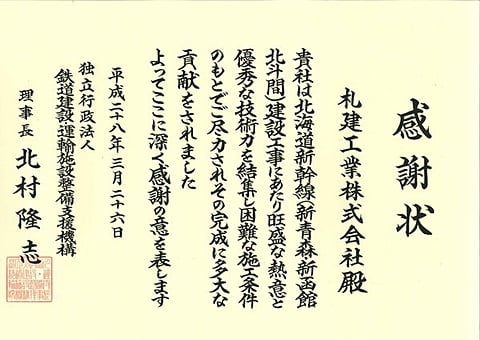 感謝状
札建工業株式会社殿
貴社は北海道新幹線(新青森・新函館
北斗間)建設工事にあたり旺盛な熱意と
優秀な技術力を結集し困難な施工条件
のもとでご尽力されその完成に多大な
貢献をされました
よってここに深く感謝の意を表します
平成二十八年三月二十六日
独立行政法人
鉄道建設・運輸施設整備支援機構
理事長 北村隆志